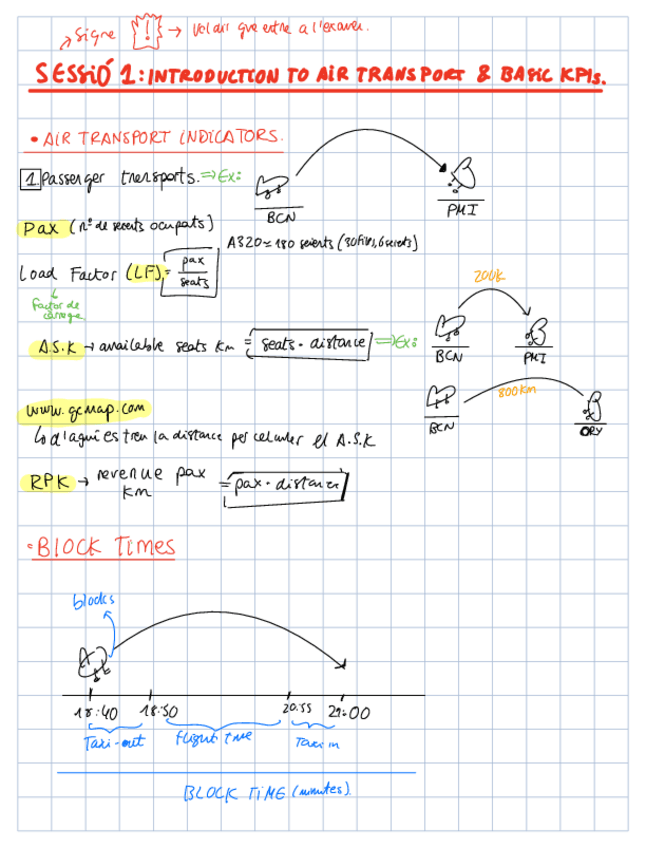 Signe ! → vol dir que entra a l'examen.
SESSIÓ 1: INTRODUCTION TO AIR TRANSPORT & BASIC KPIs.
• AIR TRANSPORT INDICATORS.
1. Passenger transports. ⇒ Ex:
BCN
PMI
Pax (nº de seients ocupats)
A320 ≈ 180 seients (30 files, 6 seients)
Load Factor (LF) = pax / seats
factor de càrrega
200k
A.S.K → available seats Km = seats · distance ⇒ Ex:
BCN
PMI
800Km
BCN
ORY
www.gcmap.com
d'aquí es treu la distance per calcular el A.S.K
RPK → revenue pax km = pax · distance
• BLOCK TIMES
blocks
18:40 18:50 20:55 21:00
Taxi-out flight time Taxi in
BLOCK TIME (minutes)